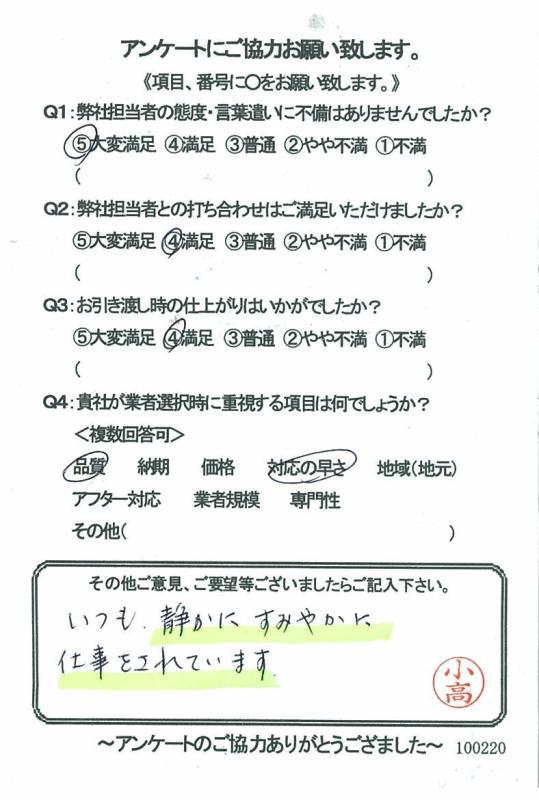 アンケートにご協力お願い致します。
《項目、番号に○をお願い致します。》
Q1:弊社担当者の態度・言葉遣いに不備はありませんでしたか?
⑤大変満足 ④満足 ③普通 ②やや不満 ①不満
( )
Q2:弊社担当者との打ち合わせはご満足いただけましたか?
⑤大変満足 ④満足 ③普通 ②やや不満 ①不満
( )
Q3:お引き渡し時の仕上がりはいかがでしたか?
⑤大変満足 ④満足 ③普通 ②やや不満 ①不満
( )
Q4:貴社が業者選択時に重視する項目は何でしょうか?
<複数回答可>
品質 納期 価格 対応の早さ 地域(地元)
アフター対応 業者規模 専門性
その他( )
その他ご意見、ご要望等ございましたらご記入下さい。
いつも、静かに すみやかに
仕事をされています
小高
~アンケートのご協力ありがとうござました~ 100220